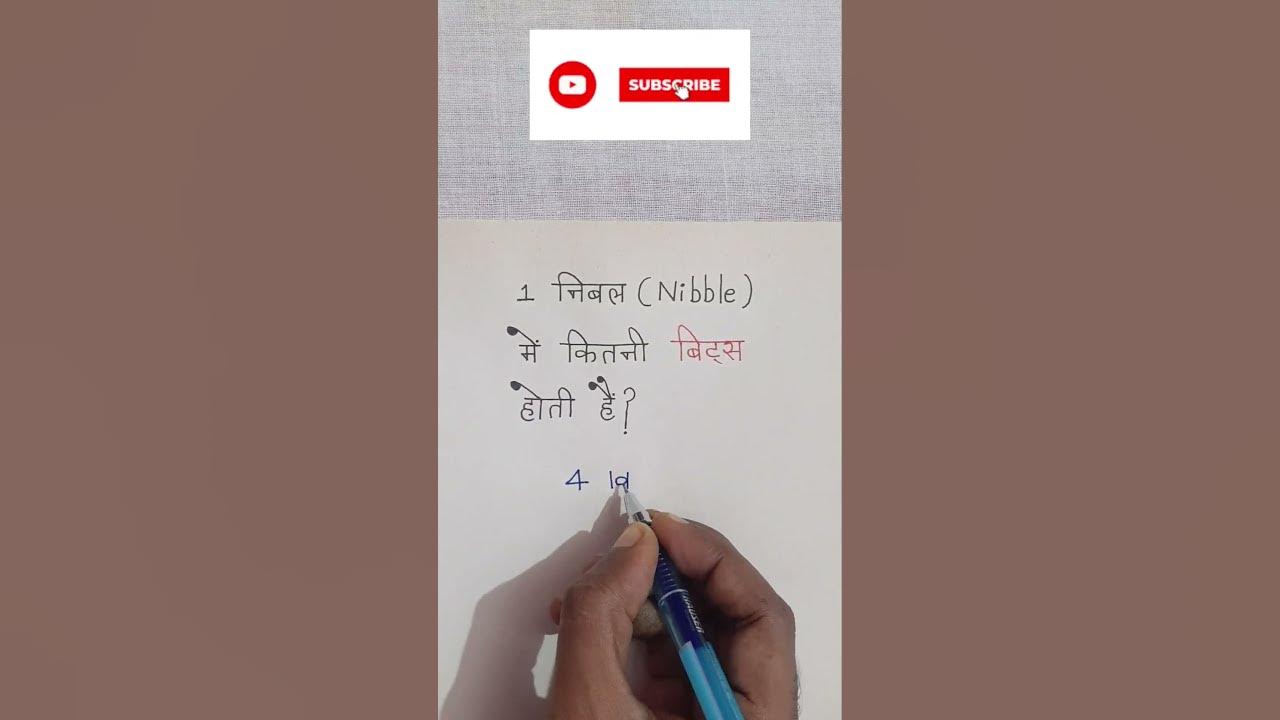 SUBSCRIBE
1 निबल (Nibble)
में कितनी बिट्स
होती हैं?
4
HAUSER